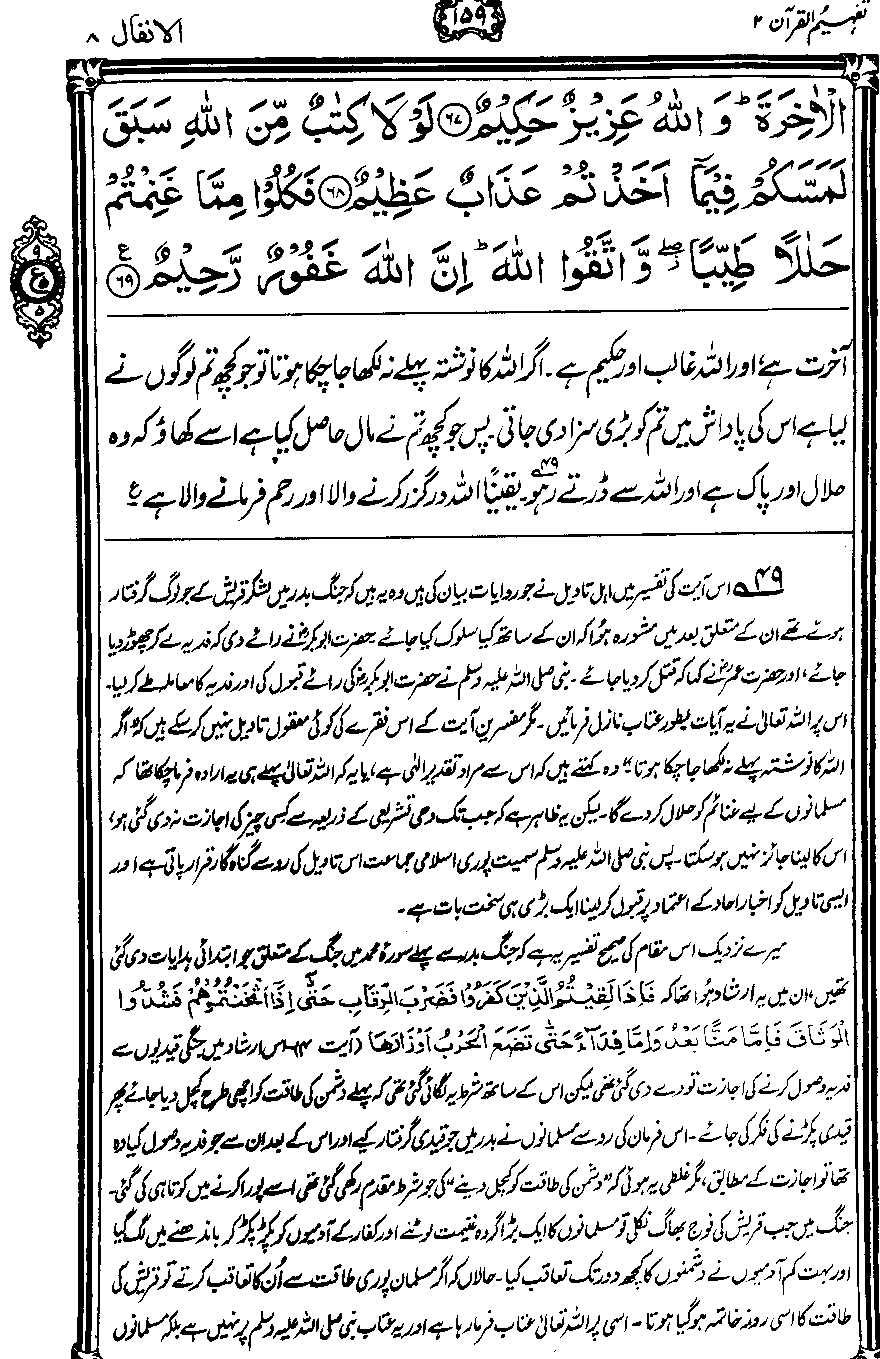 تفہیم القرآن ۲
۱۵۹
الانفال ۸
الْاٰخِرَةَ ؕ وَ اللّٰهُ عَزِيْزٌ حَكِيْمٌ ﴿۶۷﴾ لَوْ لَا كِتٰبٌ مِّنَ اللّٰهِ سَبَقَ
لَمَسَّكُمْ فِيْمَاۤ اَخَذْتُمْ عَذَابٌ عَظِيْمٌ ﴿۶۸﴾ فَكُلُوْا مِمَّا غَنِمْتُمْ
حَلٰلًا طَيِّبًا ۖ وَّ اتَّقُوا اللّٰهَ ؕ اِنَّ اللّٰهَ غَفُوْرٌ رَّحِيْمٌ ﴿۶۹﴾ ع
۹ ع ۵ ۵
آخرت ہے، اور اللہ غالب اور حکیم ہے۔ اگر اللہ کا نوشتہ پہلے نہ لکھا جا چکا ہوتا تو جو کچھ تم لوگوں نے
لیا ہے اس کی پاداش میں تم کو بڑی سزا دی جاتی۔ پس جو کچھ تم نے مال حاصل کیا ہے اسے کھاؤ کہ وہ
حلال اور پاک ہے اور اللہ سے ڈرتے رہو۔۴۹ یقیناً اللہ درگزر کرنے والا اور رحم فرمانے والا ہے ع
۴۹؎ اس آیت کی تفسیر میں اہل تاویل نے جو روایات بیان کی ہیں وہ یہ ہیں کہ جنگ بدر میں لشکر قریش کے جو لوگ گرفتار
ہوئے تھے ان کے متعلق بعد میں مشورہ ہوا کہ ان کے ساتھ کیا سلوک کیا جائے۔ حضرت ابوبکرؓ نے رائے دی کہ فدیہ لے کر چھوڑ دیا
جائے، اور حضرت عمرؓ نے کہا کہ قتل کر دیا جائے۔ نبی صلی اللہ علیہ وسلم نے حضرت ابوبکرؓ کی رائے قبول کی اور فدیہ کا معاملہ طے کر لیا۔
اس پر اللہ تعالیٰ نے یہ آیات بطور عتاب نازل فرمائیں۔ مگر مفسرین آیت کے اس فقرے کی کوئی معقول تاویل نہیں کر سکے ہیں کہ ”اگر
اللہ کا نوشتہ پہلے نہ لکھا جا چکا ہوتا“ وہ کہتے ہیں کہ اس سے مراد تقدیر الٰہی ہے، یا یہ کہ اللہ تعالیٰ پہلے ہی یہ ارادہ فرما چکا تھا کہ
مسلمانوں کے لیے غنائم کو حلال کر دے گا۔ لیکن یہ ظاہر ہے کہ جب تک وحی تشریعی کے ذریعہ سے کسی چیز کی اجازت نہ دی گئی ہو،
اس کا لینا جائز نہیں ہو سکتا۔ پس نبی صلی اللہ علیہ وسلم سمیت پوری اسلامی جماعت اس تاویل کی رو سے گناہ گار قرار پاتی ہے اور
ایسی تاویل کو اخبار احاد کے اعتماد پر قبول کر لینا ایک بڑی ہی سخت بات ہے۔
میرے نزدیک اس مقام کی صحیح تفسیر یہ ہے کہ جنگ بدر سے پہلے سورۂ محمد میں جنگ کے متعلق جو ابتدائی ہدایات دی گئی
تھیں، ان میں یہ ارشاد ہوا تھا کہ فَاِذَا لَقِيْتُمُ الَّذِيْنَ كَفَرُوْا فَضَرْبَ الرِّقَابِ حَتّٰۤى اِذَاۤ اَثْخَنْتُمُوْهُمْ فَشُدُّوا
الْوَثَاقَ فَاِمَّا مَنًّۢا بَعْدُ وَاِمَّا فِدَآءً حَتّٰى تَضَعَ الْحَرْبُ اَوْزَارَهَا (آیت ۴) اس ارشاد میں جنگی قیدیوں سے
فدیہ وصول کرنے کی اجازت تو دے دی گئی تھی لیکن اس کے ساتھ شرط یہ لگائی گئی تھی کہ پہلے دشمن کی طاقت کو اچھی طرح کچل دیا جائے پھر
قیدی پکڑنے کی فکر کی جائے۔ اس فرمان کی رو سے مسلمانوں نے بدر میں جو قیدی گرفتار کیے اور اس کے بعد ان سے جو فدیہ وصول کیا وہ
تھا تو اجازت کے مطابق، مگر غلطی یہ ہوئی کہ ”دشمن کی طاقت کو کچل دینے“ کی جو شرط مقدم رکھی گئی تھی اسے پورا کرنے میں کوتاہی کی گئی۔
جنگ میں جب قریش کی فوج بھاگ نکلی تو مسلمانوں کا ایک بڑا گروہ غنیمت لوٹنے اور کفار کے آدمیوں کو پکڑ پکڑ کر باندھنے میں لگ گیا
اور بہت کم آدمیوں نے دشمنوں کا کچھ دور تک تعاقب کیا۔ حالاں کہ اگر مسلمان پوری طاقت سے اُن کا تعاقب کرتے تو قریش کی
طاقت کا اسی روز خاتمہ ہو گیا ہوتا۔ اسی پر اللہ تعالیٰ عتاب فرما رہا ہے اور یہ عتاب نبی صلی اللہ علیہ وسلم پر نہیں ہے بلکہ مسلمانوں